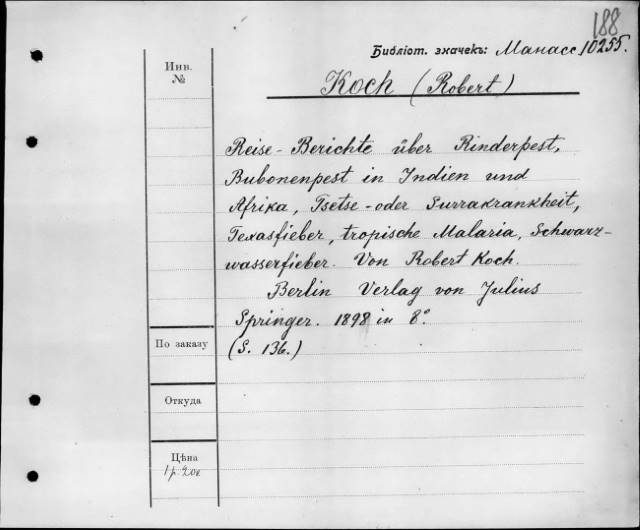 188
Библіот. значекъ: Манасс 10255.
Инв.
№
Koch (Robert)
Reise-Berichte über Rinderpest,
Bubonenpest in Indien und
Afrika, Tsetse-oder Surrakrankheit,
Texasfieber, tropische Malaria, Schwarz-
wasserfieber. Von Robert Koch.
Berlin Verlag von Julius
Springer. 1898 in 8°.
(S. 136.)
По заказу
Откуда
Цѣна
1 р. 20к